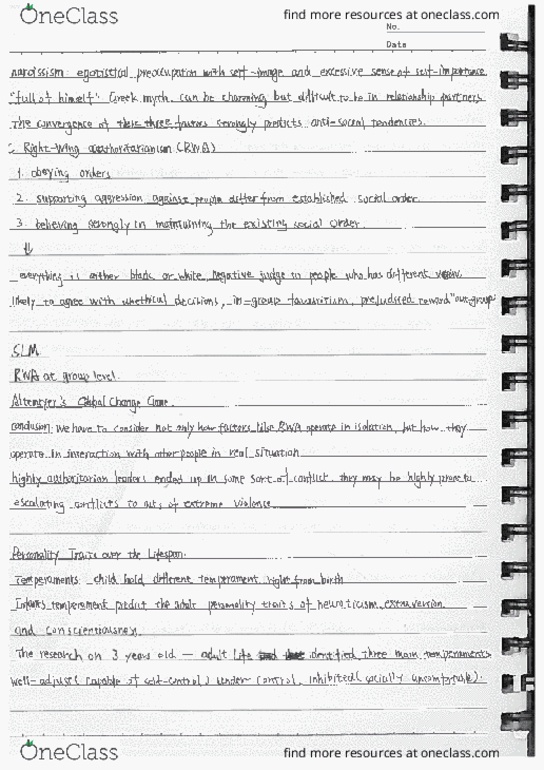 OneClass
find more resources at oneclass.com
No.
Date
narcissism: egotistical preoccupation with self-image and excessive sense of self-importance
"full of himself" Greek myth. can be charming but difficult to be in relationship partners
The convergence of these three factors strongly predicts anti-social tendencies.
Right-Wing authoritarianism (RWA)
1. obeying orders
2. supporting aggression against people differ from established social order.
3. believing strongly in maintaining the existing social order.
↓
everything is either black or white, negative judge in people who has different view.
likely to agree with unethical decisions, in-group favouritism, prejudiced toward "out-group"
SLM.
RWA at group level.
Altemeyer's Global Change Game.
conclusion: We have to consider not only how factors like RWA operate in isolation, but how they
operate in interaction with other people in real situation
highly authoritarian leaders ended up in some sort of conflict. they may be highly prone to
escalating conflicts to acts of extreme violence
Personality Traits over the Lifespan.
Temperaments: child hold different temperament right from birth
Infants temperament predict the adult personality traits of neuroticism, extraversion,
and conscientiousness.
The research on 3 years old — adult life identified three main temperaments
well-adjust (capable of self-control) under control, inhibited (socially uncomfortable).
OneClass
find more resources at oneclass.com